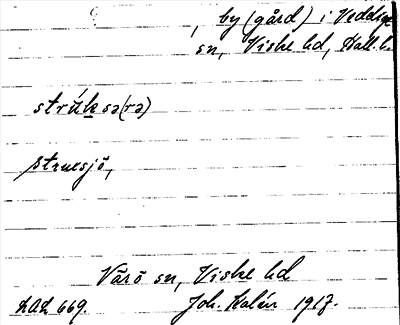 , by (gård) i Veddige
sn, Viske hd, Hall. l.
strúksə(rə)
Struesjö,
Värö sn, Viske hd
LAL 669. Joh. Kalén 1917.